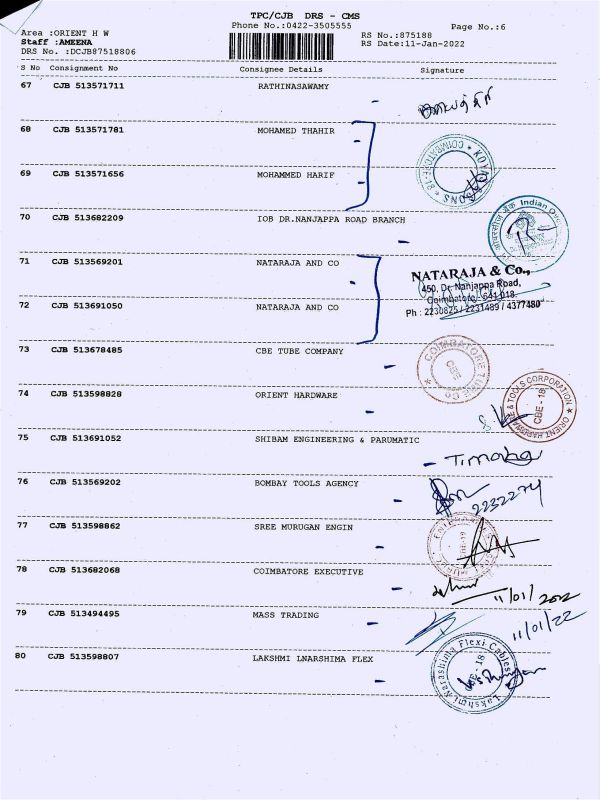 TPC/CJB DRS - CMS
Phone No.:0422-3505555
Page No.:6
Area :ORIENT H W
Staff :AMEENA
DRS No. :DCJB87518806
RS No.:875188
RS Date:11-Jan-2022
S No Consignment No Consignee Details Signature
67 CJB 513571711 RATHINASAWAMY
68 CJB 513571781 MOHAMED THAHIR
69 CJB 513571656 MOHAMMED HARIF
COIMBATORE-18
70 CJB 513682209 IOB DR.NANJAPPA ROAD BRANCH
Indian
71 CJB 513569201 NATARAJA AND CO
NATARAJA & Co.,
450, Dr. Nanjappa Road,
Coimbatore - 641 018.
Ph : 2230825 / 2231489 / 4377480
72 CJB 513691050 NATARAJA AND CO
73 CJB 513678485 CBE TUBE COMPANY
COIMBATORE TUBE Co
CBE
74 CJB 513598828 ORIENT HARDWARE
ORIENT HARDWARE & TOOLS CORPORATION
CBE - 18
75 CJB 513691052 SHIBAM ENGINEERING & PARUMATIC
76 CJB 513569202 BOMBAY TOOLS AGENCY
2232274
77 CJB 513598862 SREE MURUGAN ENGIN
78 CJB 513682068 COIMBATORE EXECUTIVE
79 CJB 513494495 MASS TRADING
11/01/22
80 CJB 513598807 LAKSHMI LNARSHIMA FLEX
Lakshmi Narashima Flexi Cables